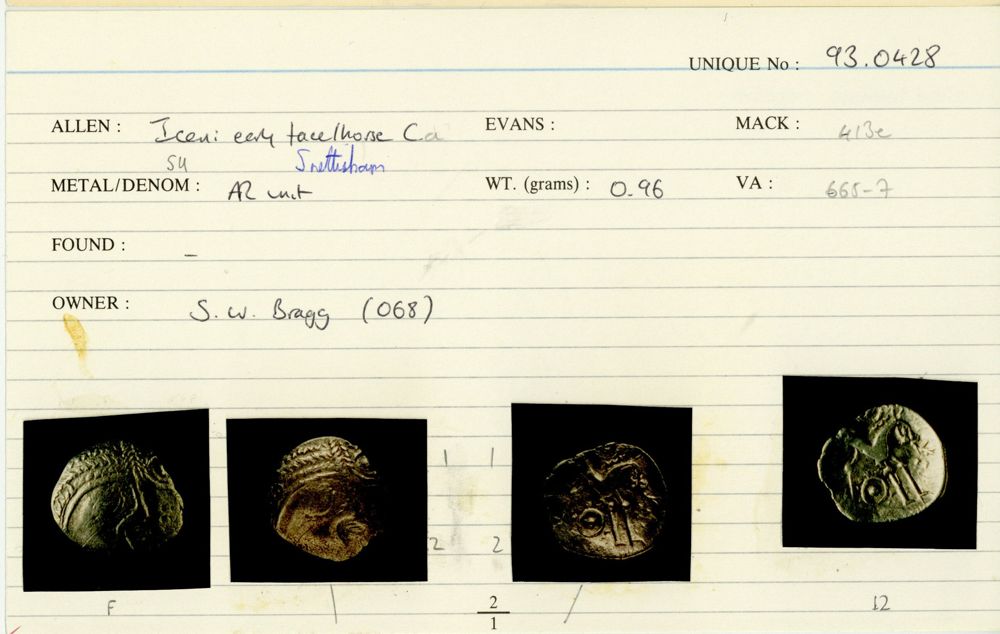 UNIQUE No : 93.0428
ALLEN : Iceni early face/horse Ca EVANS : MACK : 413e
SU Snettisham
METAL/DENOM : AR unit WT. (grams) : 0.96 VA : 665-7
FOUND : –
OWNER : S. W. Bragg (068)
1 1
2 2
F / 2/1 / 12